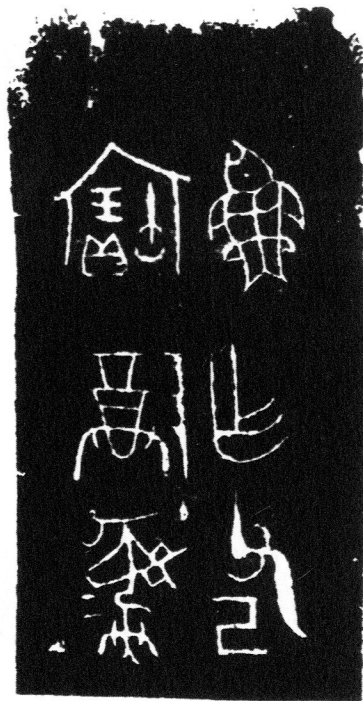 魚乍父己
寶尊彝